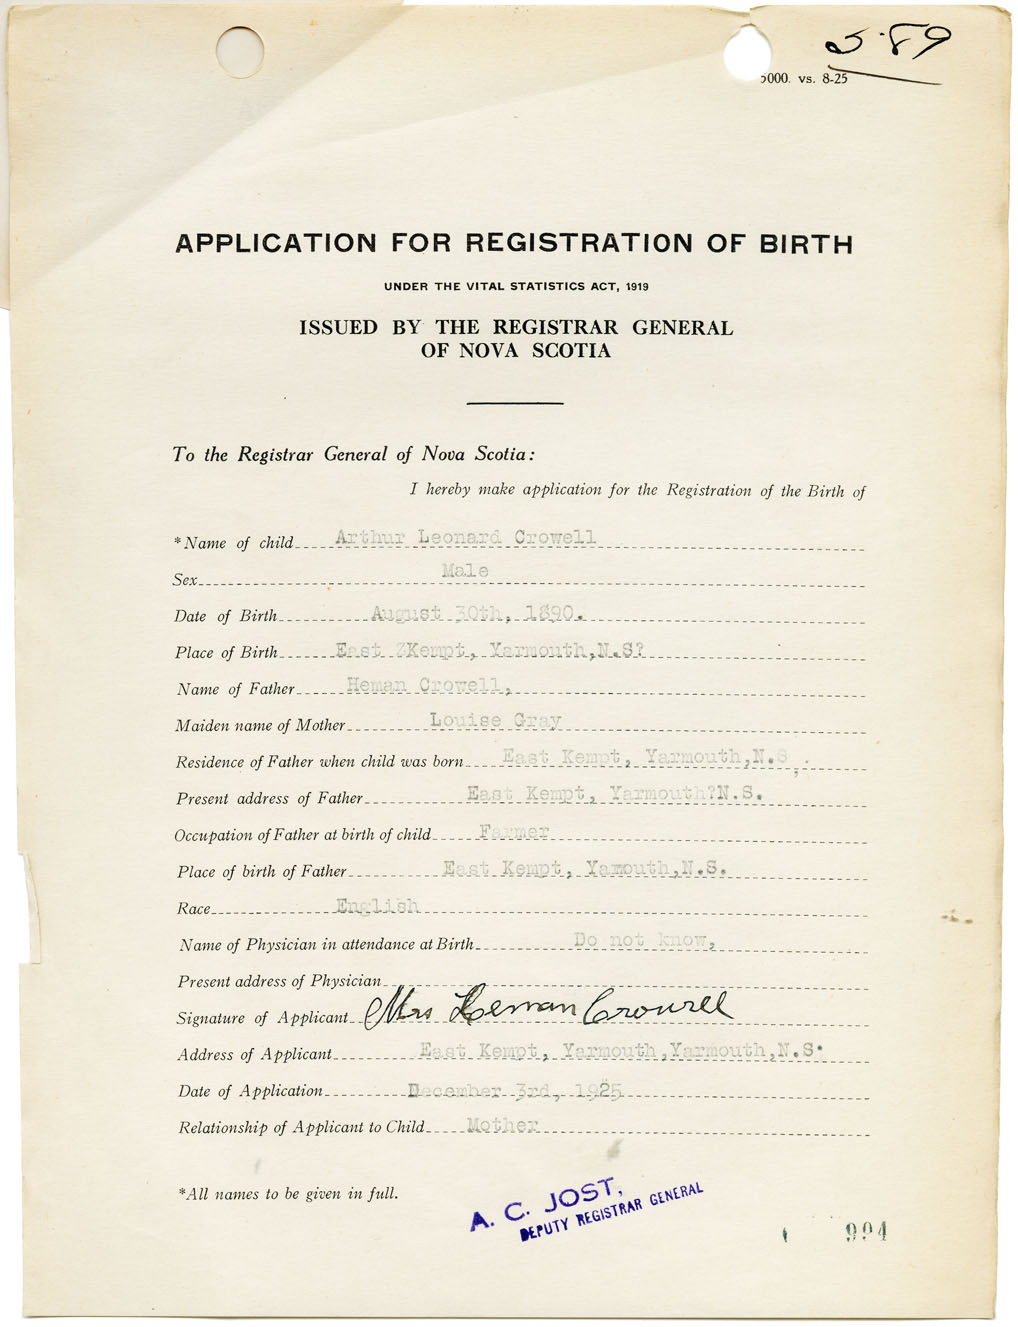 589
5000. vs. 8-25
APPLICATION FOR REGISTRATION OF BIRTH
UNDER THE VITAL STATISTICS ACT, 1919
ISSUED BY THE REGISTRAR GENERAL
OF NOVA SCOTIA
To the Registrar General of Nova Scotia:
I hereby make application for the Registration of the Birth of
*Name of child Arthur Leonard Crowell
Sex Male
Date of Birth August 30th, 1890.
Place of Birth East Kempt, Yarmouth,N.S?
Name of Father Heman Crowell,
Maiden name of Mother Louise Gray
Residence of Father when child was born East Kempt, Yarmouth,N.S,.
Present address of Father East Kempt, Yarmouth?N.S.
Occupation of Father at birth of child Farmer
Place of birth of Father East Kempt, Yamouth,N.S.
Race English
Name of Physician in attendance at Birth Do not know,
Present address of Physician
Signature of Applicant Mrs Heman Crowell
Address of Applicant East Kempt, Yarmouth,Yarmouth,N.S.
Date of Application December 3rd, 1925
Relationship of Applicant to Child Mother
*All names to be given in full.
A. C. JOST,
DEPUTY REGISTRAR GENERAL
994